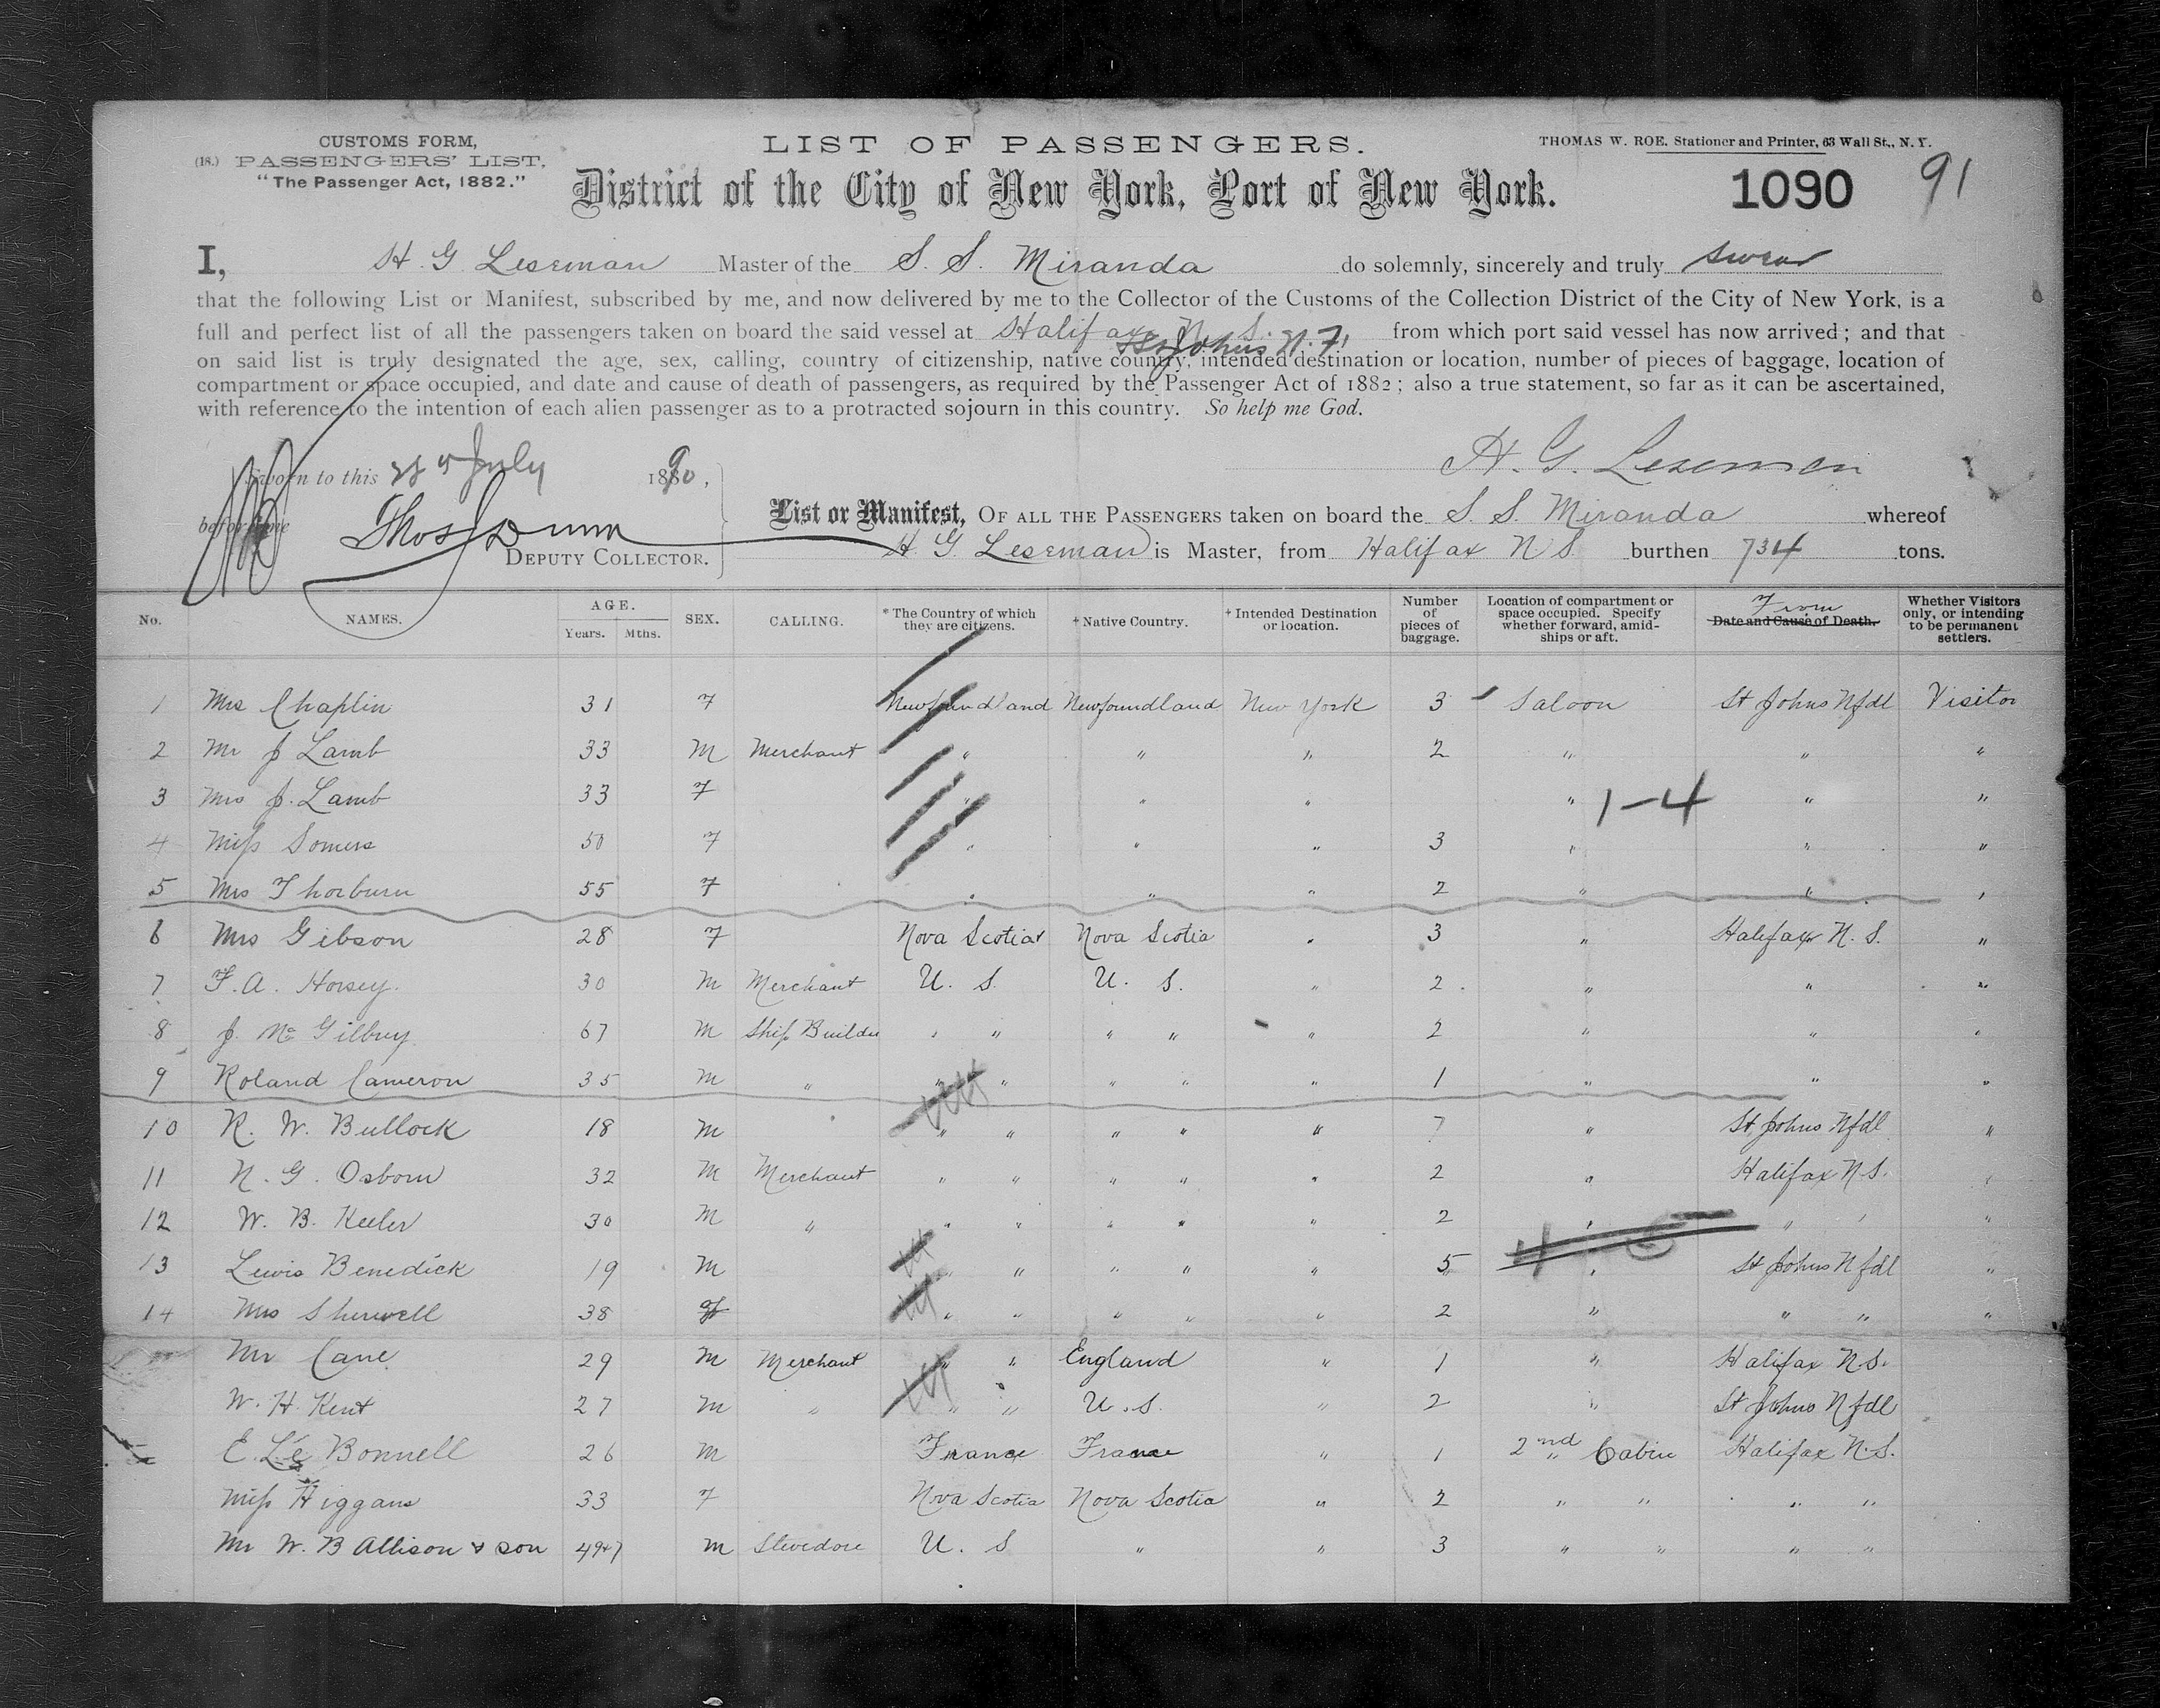 CUSTOMS FORM,
(18.) PASSENGERS' LIST.
"The Passenger Act, 1882."
LIST OF PASSENGERS.
THOMAS W. ROE. Stationer and Printer, 63 Wall St., N. Y.
District of the City of New York, Port of New York.
1090 91
I, H. G. Leseman Master of the S. S. Miranda do solemnly, sincerely and truly swear
that the following List or Manifest, subscribed by me, and now delivered by me to the Collector of the Customs of the Collection District of the City of New York, is a
full and perfect list of all the passengers taken on board the said vessel at Halifax N. S. from which port said vessel has now arrived; and that
St Johns N.F.
on said list is truly designated the age, sex, calling, country of citizenship, native country, intended destination or location, number of pieces of baggage, location of
compartment or space occupied, and date and cause of death of passengers, as required by the Passenger Act of 1882; also a true statement, so far as it can be ascertained,
with reference to the intention of each alien passenger as to a protracted sojourn in this country. So help me God.
H. G. Leseman
Sworn to this July 1890,
before me Thos Dunn
DEPUTY COLLECTOR.
List or Manifest, OF ALL THE PASSENGERS taken on board the S. S. Miranda whereof
H. G. Leseman is Master, from Halifax N S. burthen 734 tons.
No. NAMES. AGE. Years. Mths. SEX. CALLING. * The Country of which they are citizens. + Native Country. + Intended Destination or location. Number of pieces of baggage. Location of compartment or space occupied. Specify whether forward, amidships or aft. From Date and Cause of Death. Whether Visitors only, or intending to be permanent settlers.
1 Mrs Chaplin 31 F Newfoundland Newfoundland New York 3 Saloon St Johns Nfdl Visitor
2 Mr J Lamb 33 M Merchant " " " 2 " " "
3 Mrs J. Lamb 33 F " " " " 1-4 " "
4 Miss Somers 50 F " " " 3 " " "
5 Mrs Thorburn 55 F " " " 2 " " "
6 Mrs Gibson 28 F Nova Scotia Nova Scotia " 3 " Halifax N. S. "
7 F. A. Horsey. 30 M Merchant U. S. U. S. " 2 " " "
8 J. Mc Gilbry 67 M Ship Builder " " " " " 2 " " "
9 Roland Cameron 35 M " " " " " " 1 " " "
10 R. W. Bullock 18 M " " " " " 7 " St Johns Nfdl "
11 N. G. Osborn 32 M Merchant " " " " " 2 " Halifax N.S. "
12 W. B. Keeler 30 M " " " " " " 2 " " " "
13 Lewis Benedick 19 M " " " " " 5 " St Johns Nfdl "
14 Mrs Sherwell 38 F " " " " " 2 " " " "
Mr Cane 29 M Merchant " " England " 1 " Halifax N.S.
W. H. Kent 27 M " " " U. S. " 2 " St Johns Nfdl
E. Le Bonnell 26 M France France " 1 2nd Cabin Halifax N.S.
Miss Higgans 33 F Nova Scotia Nova Scotia " 2 " " " "
Mr W. B Allison & son 49+7 M Stevedore U. S " " 3 " " " "